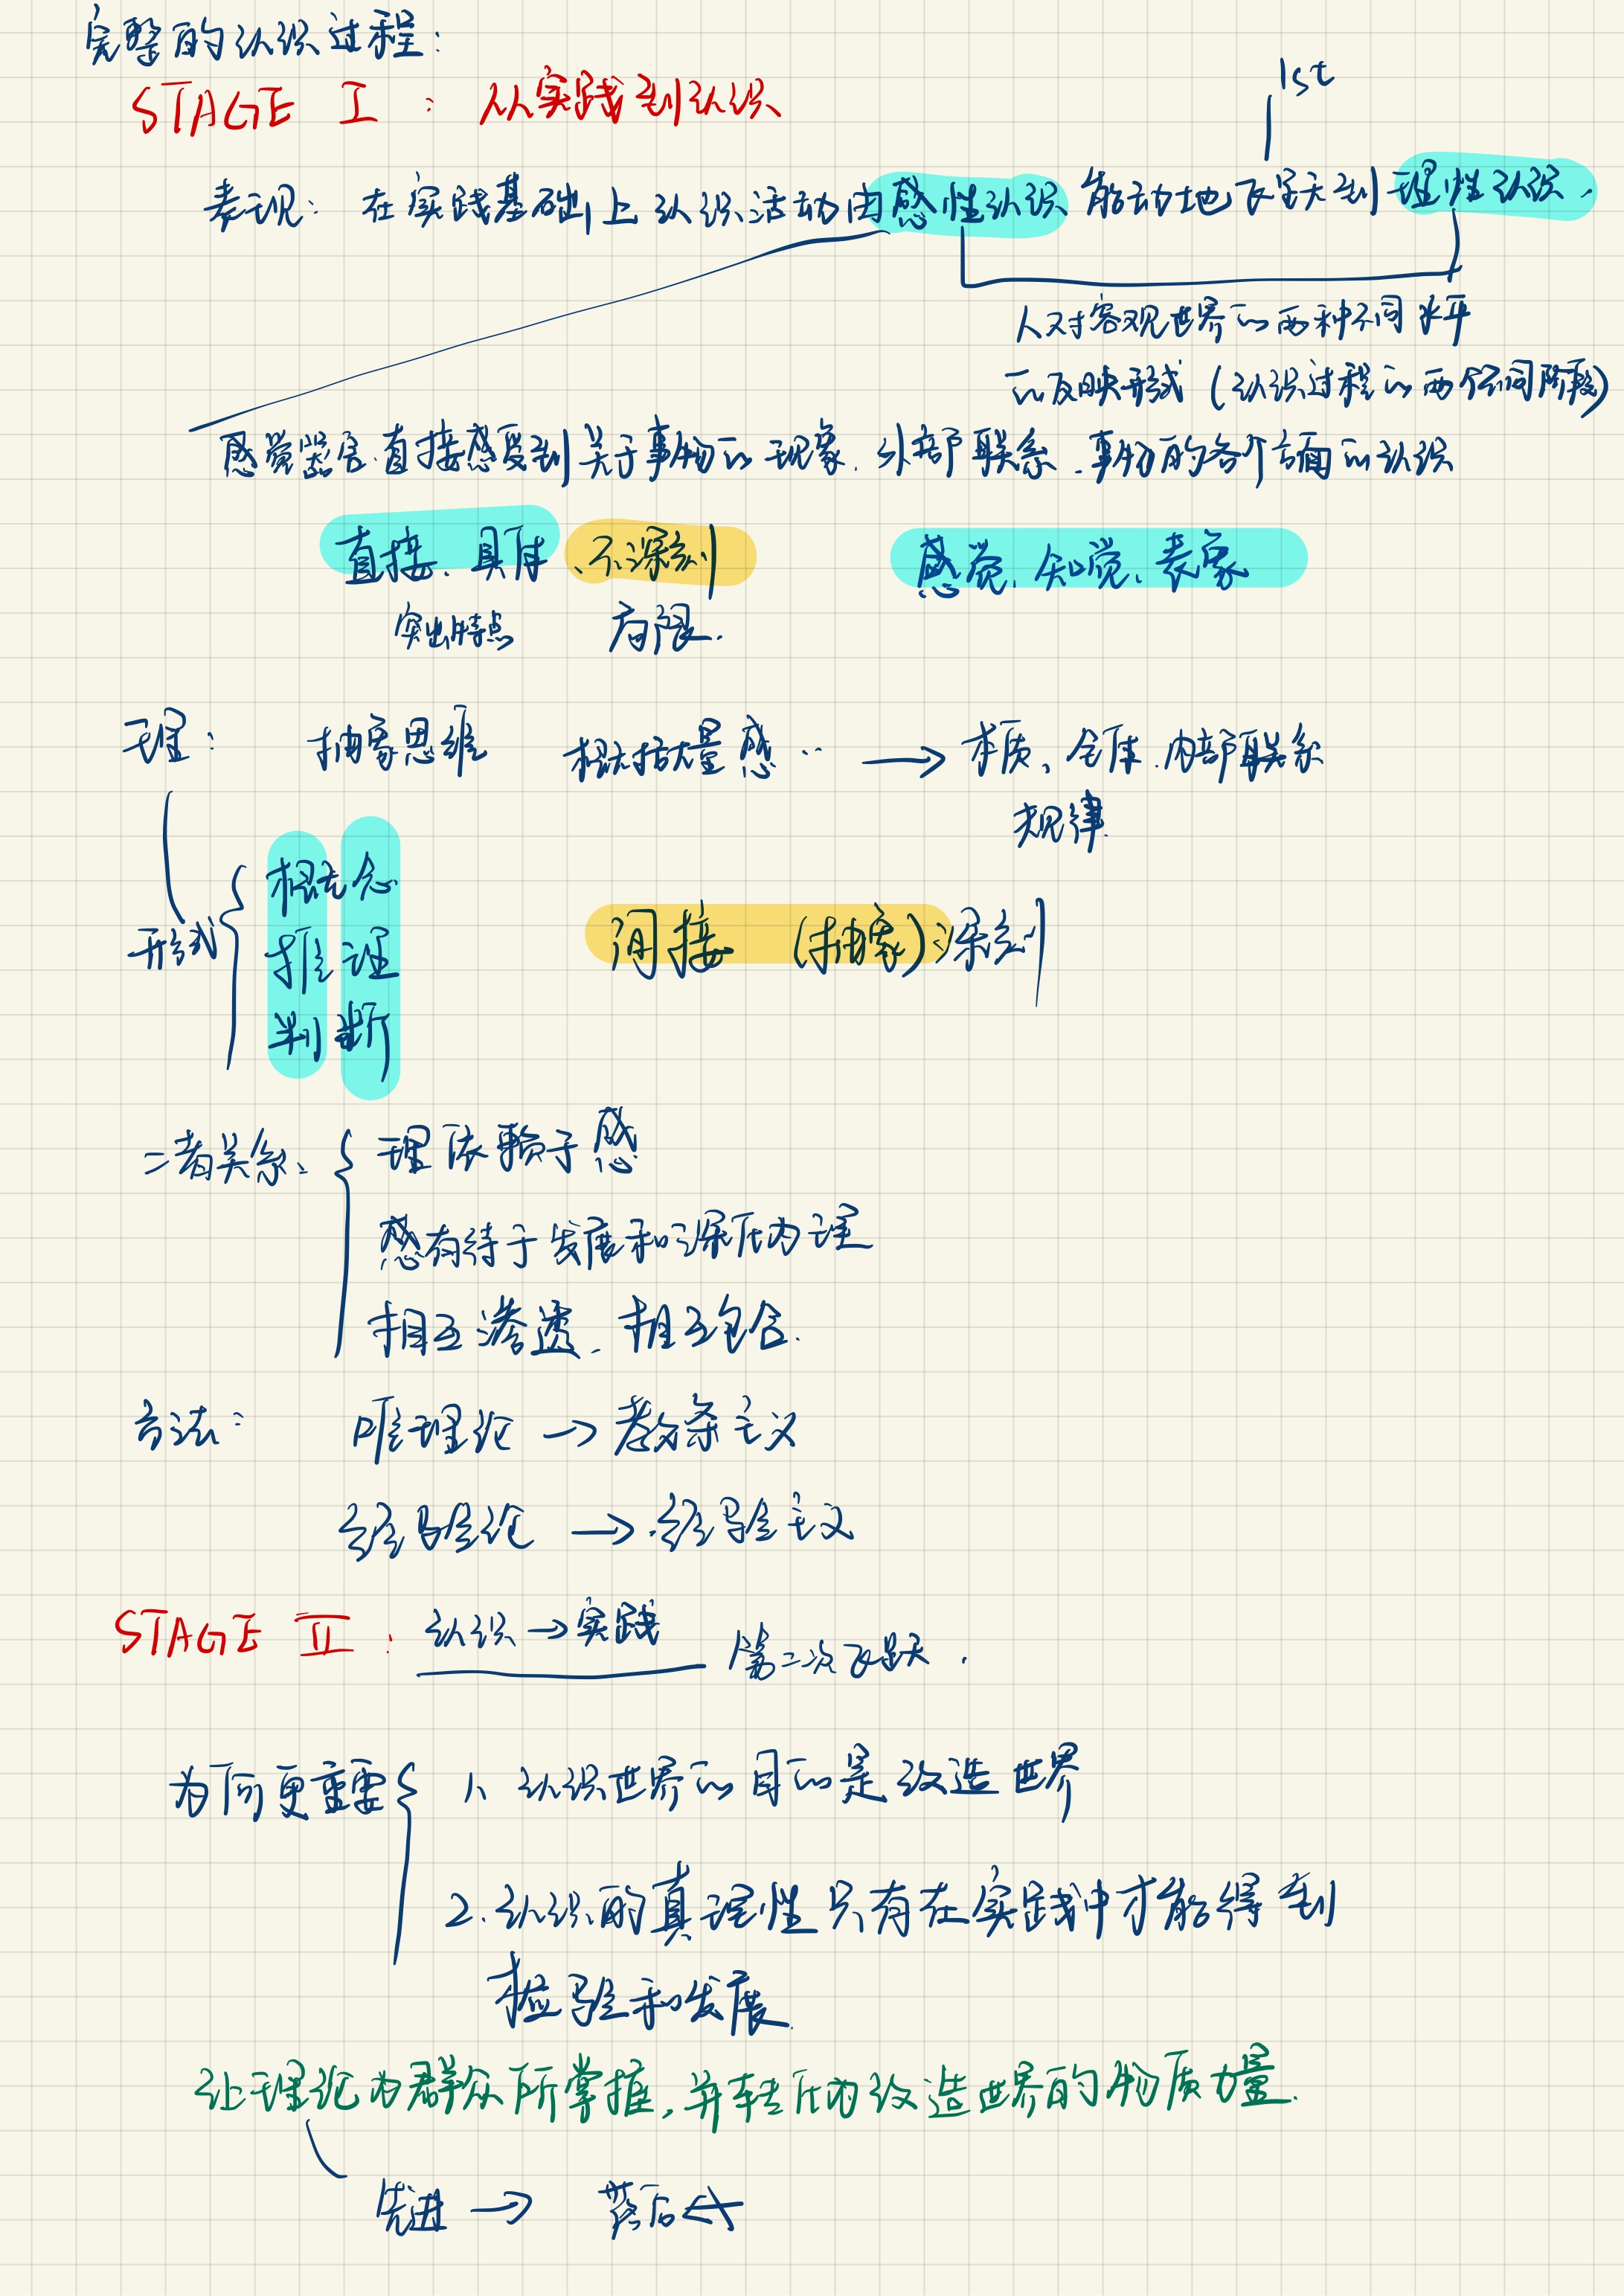 完整的认识过程：
STAGE I：从实践到认识
1st
表现：在实践基础上认识活动由感性认识能动地飞跃到理性认识.
人对客观世界的两种不同水平
的反映形式（认识过程的两个不同阶段）
感觉器官直接感受到关于事物的现象、外部联系、事物的各个方面的认识
直接、具体、不深刻 感觉、知觉、表象
突出特点 有限.
理： 抽象思维 概括大量感… → 本质、全体、内部联系
规律.
形式 { 概念
推理
判断
间接 （抽象）深刻
二者关系、{ 理依赖于感
感有待于发展和深化为理
相互渗透、相互包含.
方法： 唯理论 → 教条主义
经验论 → 经验主义
STAGE II： 认识→实践 第二次飞跃.
为何更重要 { 1、认识世界的目的是改造世界
2.认识的真理性只有在实践中才能得到
检验和发展.
让理论为群众所掌握,并转化为改造世界的物质力量.
先进 → 落后